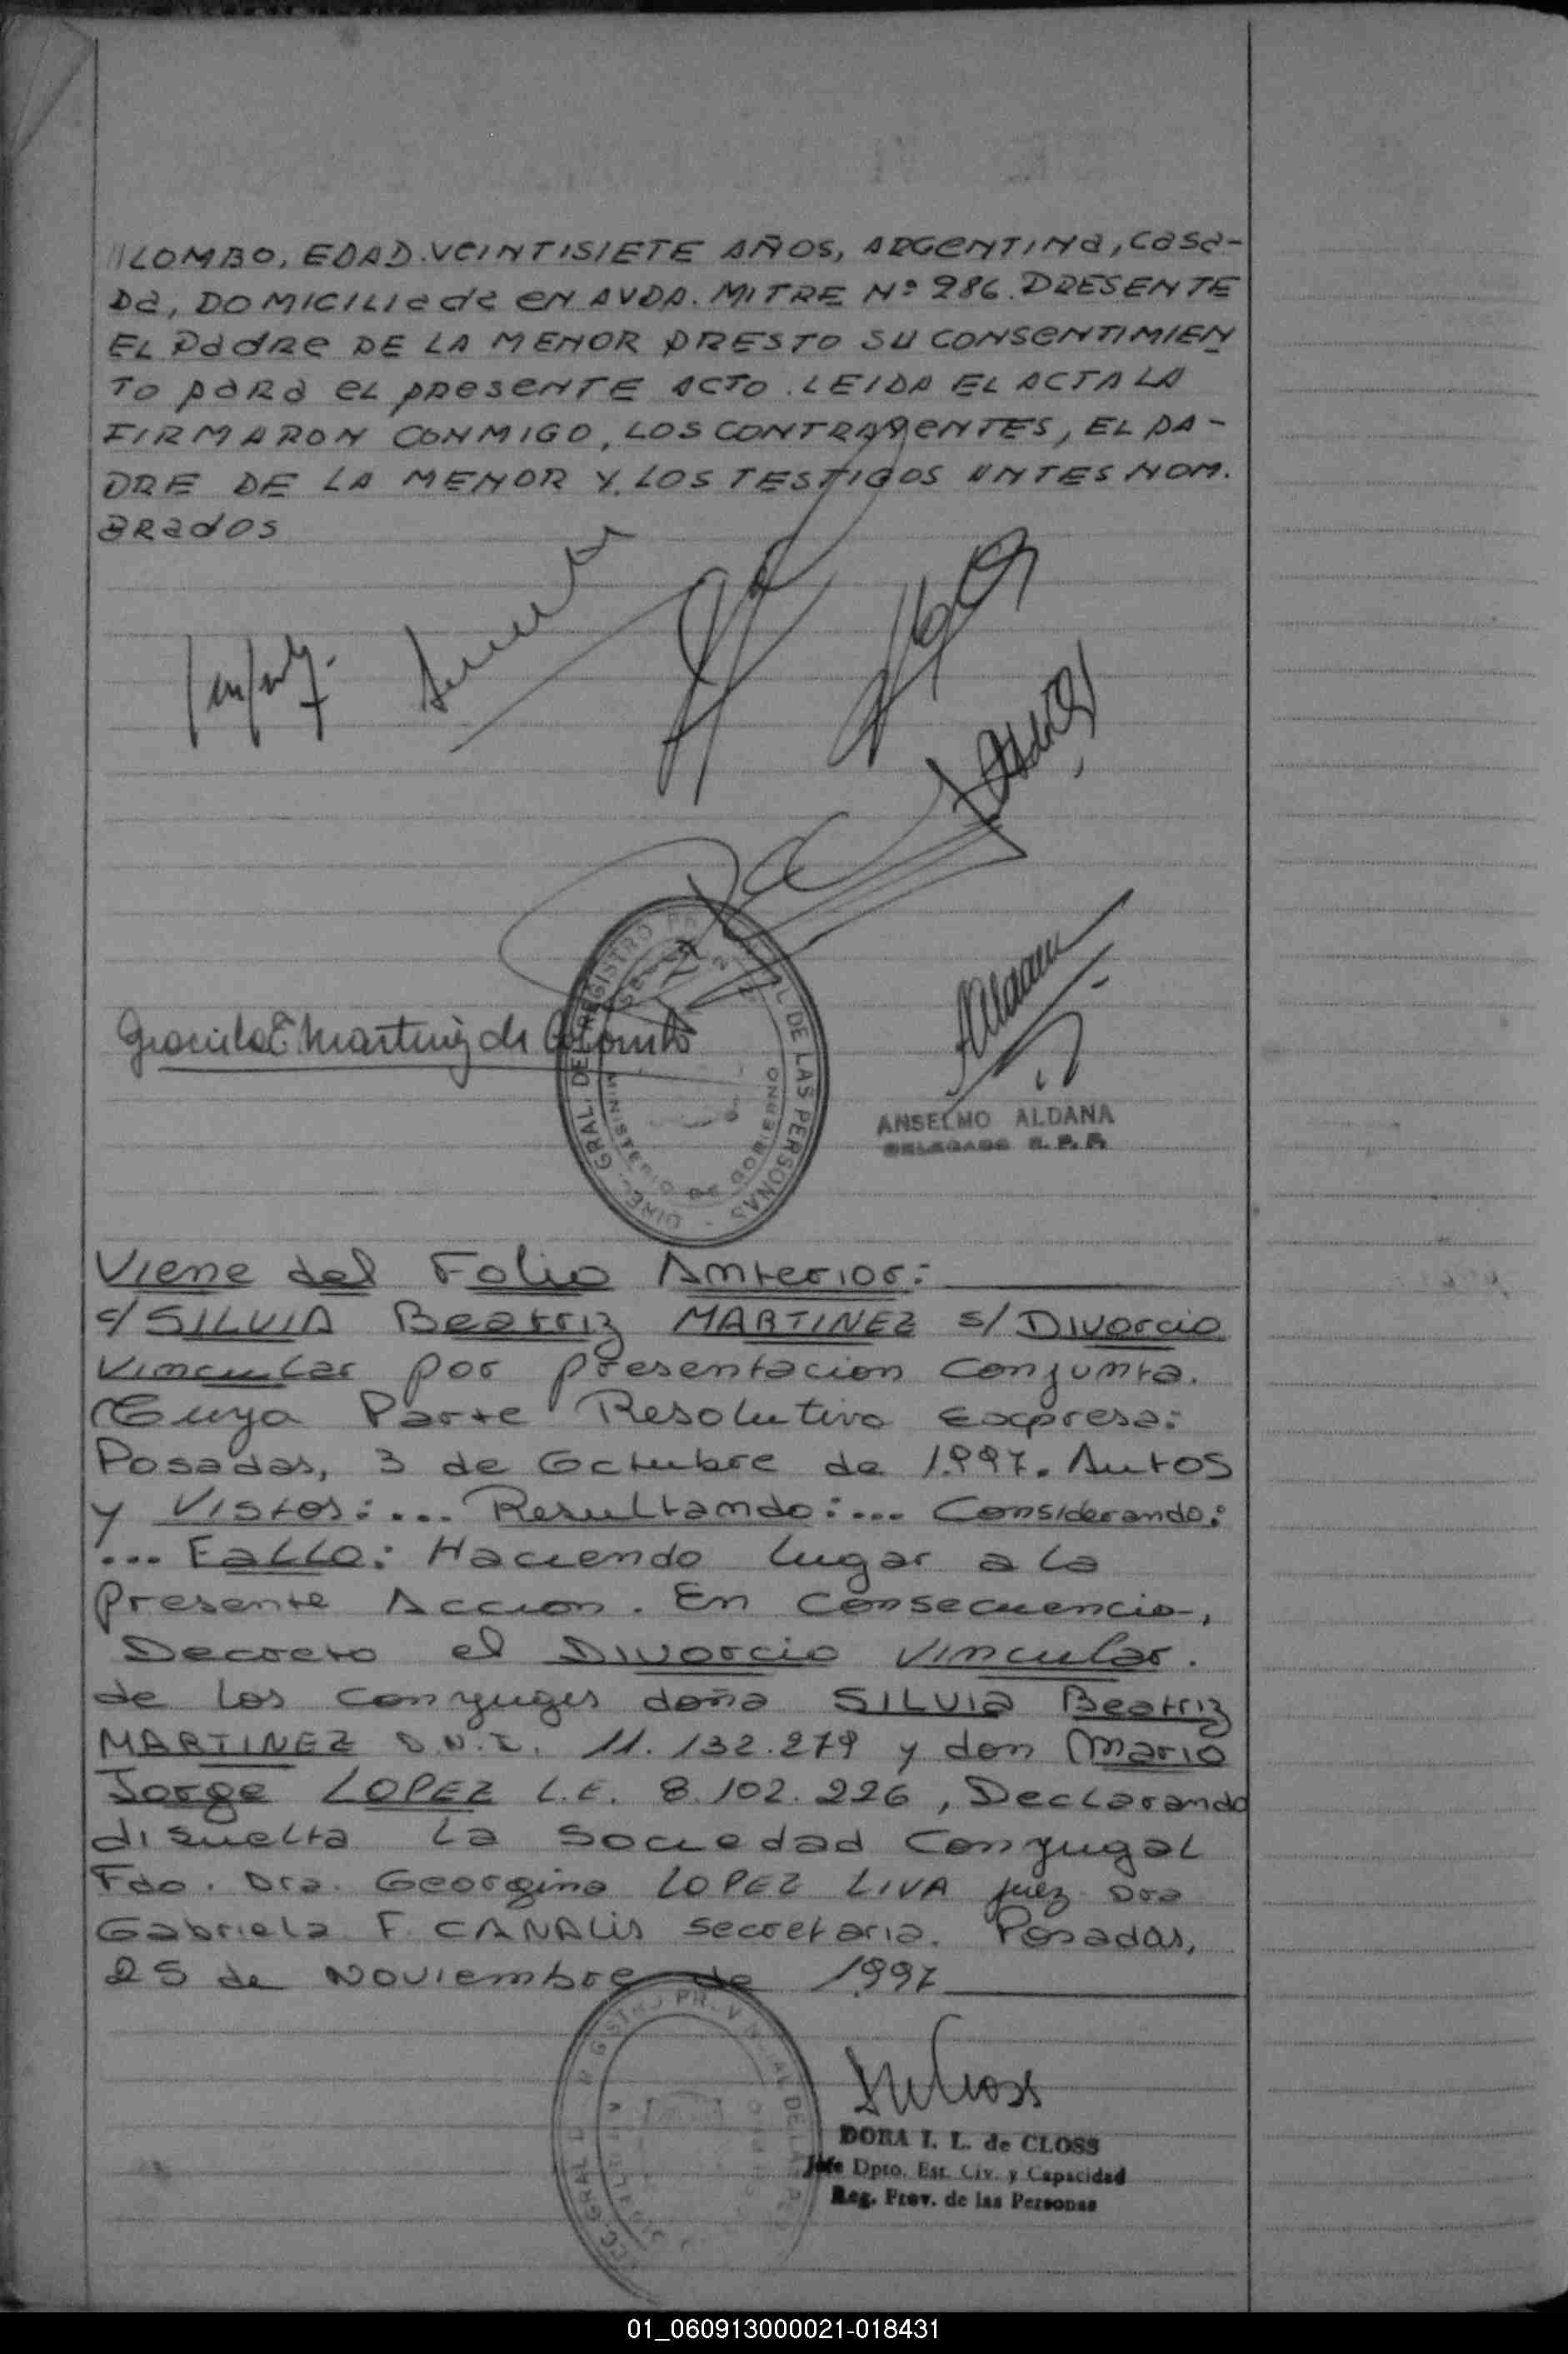 //LOMBO, EDAD VEINTISIETE AÑOS, ARGENTINA, CASA-
DA, DOMICILIADA EN AVDA. MITRE Nº 286. PRESENTE
EL PADRE DE LA MENOR PRESTO SU CONSENTIMIEN
TO PARA EL PRESENTE ACTO. LEIDA EL ACTA LA
FIRMARON CONMIGO, LOS CONTRAYENTES, EL PA-
DRE DE LA MENOR Y LOS TESTIGOS ANTES NOM.
BRADOS
Graciela E Martinez de Colombo
DIREC. GRAL. DEL REGISTRO PROVINCIAL DE LAS PERSONAS
MINISTERIO DE GOBIERNO
ANSELMO ALDANA
DELEGADO R. P. P.
Viene del Folio Anterior:
c/ SILVIA Beatriz MARTINEZ s/ Divorcio
Vincular por presentacion Conjunta.
Cuya Parte Resolutiva expresa:
Posadas, 3 de Octubre de 1.997. Autos
y Vistos:... Resultando:... Considerando:
... Fallo: Haciendo lugar a la
presente Accion. En Consecuencia,
Decreto el Divorcio Vincular.
de los conyuges doña SILVIA Beatriz
MARTINEZ D.N.I. 11.132.279 y don Mario
Jorge LOPEZ L.E. 8.102.226, Declarando
disuelta la Sociedad Conyugal
Fdo. Dra. Georgina LOPEZ LIVA juez Dra
Gabriela F. CANALIS secretaria. Posadas,
25 de Noviembre de 1997
DORA I. L. de CLOSS
Jefe Dpto. Est. Civ. y Capacidad
Reg. Prov. de las Personas
01_060913000021-018431